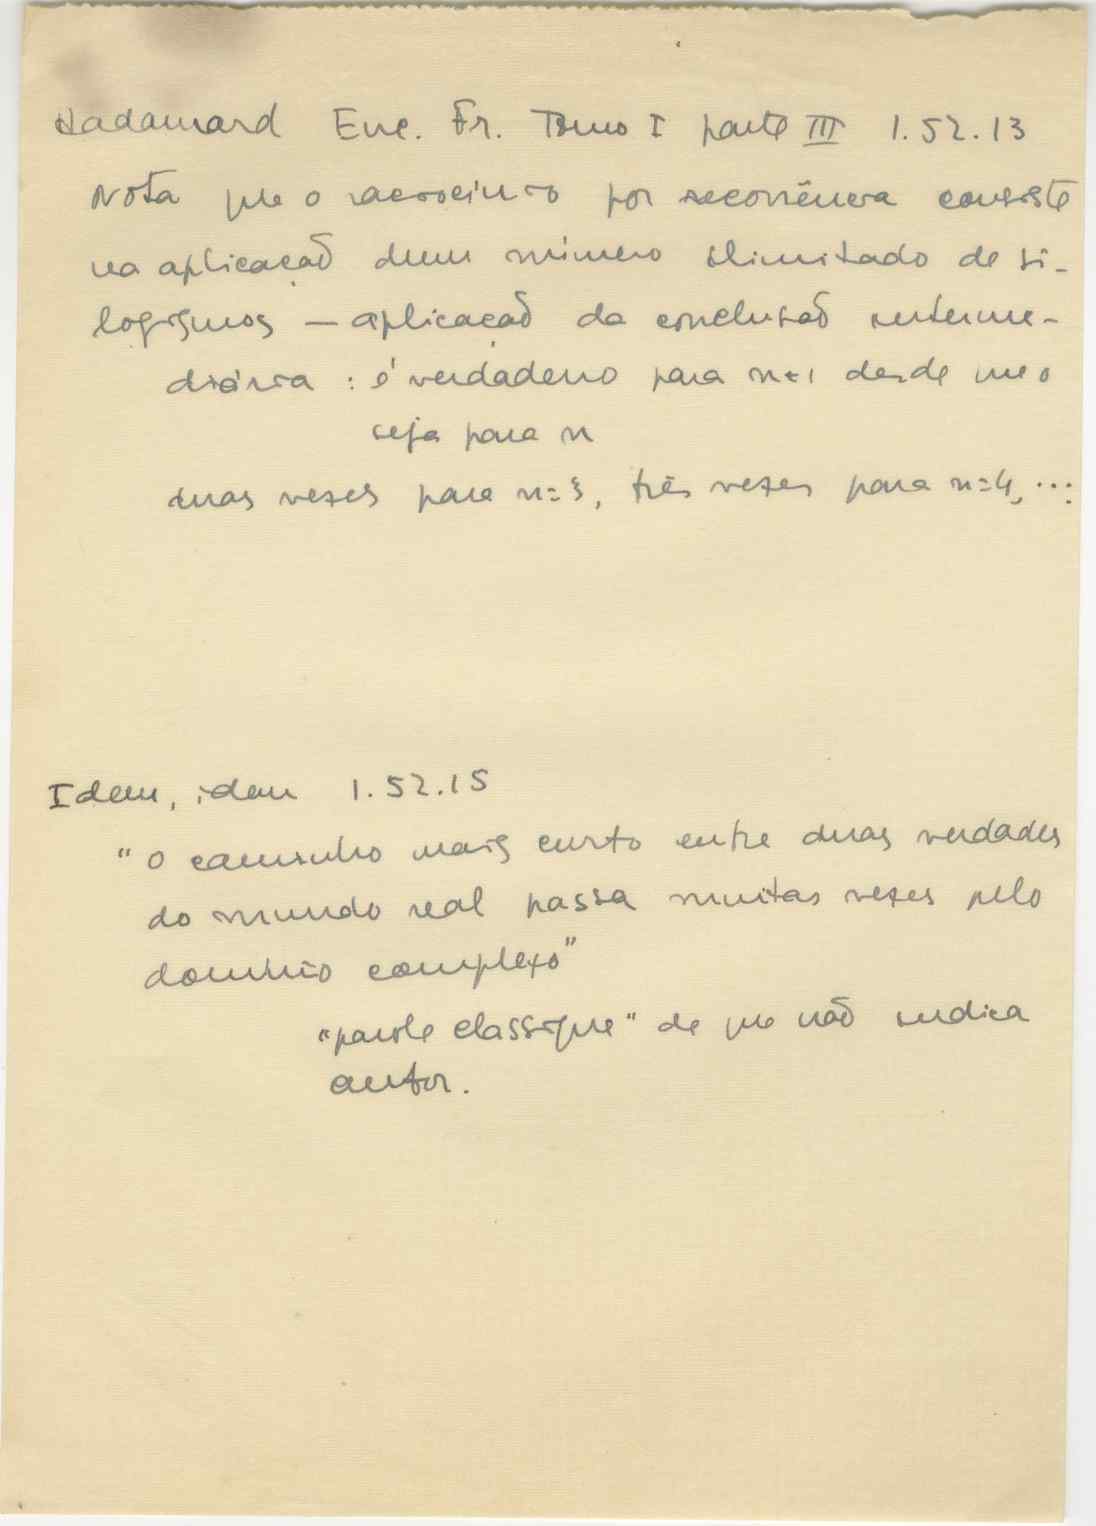 Hadamard Enc. Fr. Tomo I parte III 1.52.13
Nota que o raciocínio por recorrência consiste
na aplicação dum número ilimitado de si-
logismos — aplicação da conclusão interme-
diária : é verdadeiro para n+1 desde que o
seja para n
duas vezes para n=3, três vezes para n=4, ...;
Idem, idem 1.52.15
"O caminho mais curto entre duas verdades
do mundo real passa muitas vezes pelo
domínio complexo"
"parole classique" de que não indica
autor.